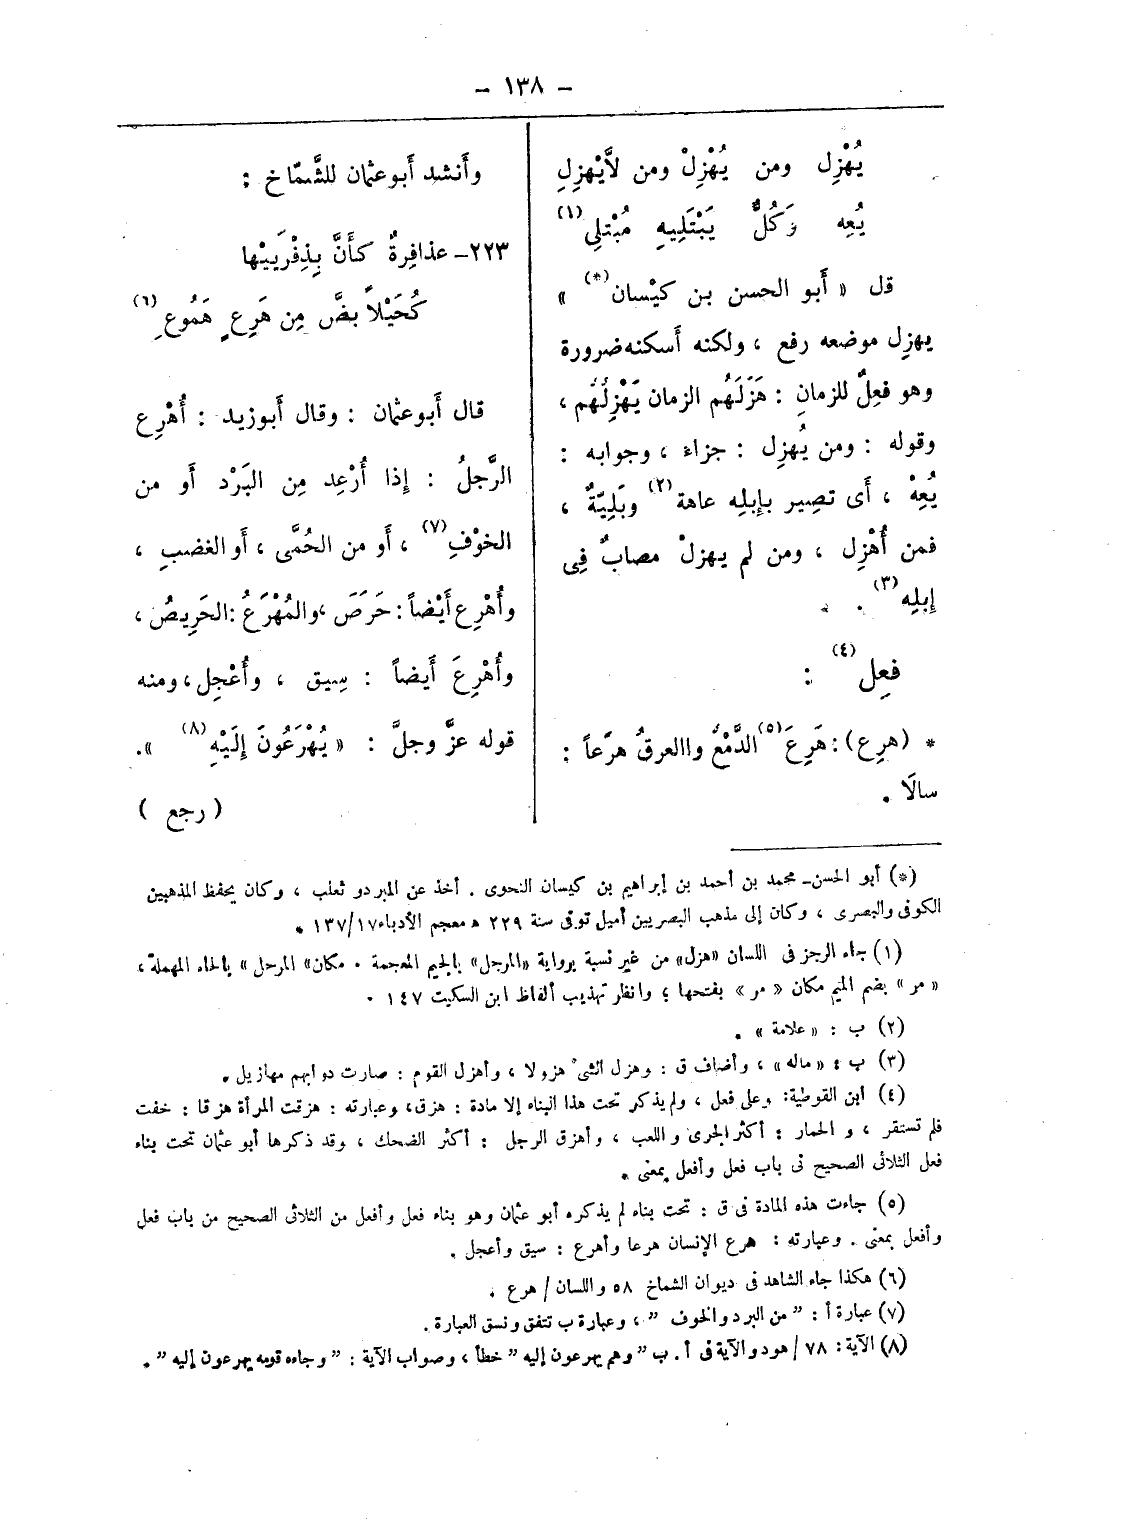 – ١٣٨ –
يُهْزِل ومن يُهْزِلْ ومن لاَيْهزِلِ
يُعِه وَكُلٌّ يَبْتَلِيهِ مُبْتلِي(١)
قل « أَبو الحسن بن كَيْسان(*) »
يهزِل موضعه رفع ، ولكنه أَسكنه ضرورة
وهو فعِلٌ للزمانِ : هَزَلَهُم الزمان يَهْزِلُهُم ،
وقوله : ومن يُهزِل : جزاءٌ ، وجوابه :
يُعِهْ ، أَى تصِير بإبلِه عاهة(٢) وبَلِيّةٌ ،
فمن أُهْزِل ، ومن لم يهزلْ مصابٌ فِى
إِبلِه(٣) .
فعِل(٤) :
* (هرِع) : هَرِعَ(٥) الدَّمْعُ واالعرقُ هرَعاً :
سالَا .
وأَنشد أَبوعثمان للشَّمّاخ :
٢٢٣– عذافِرةٌ كأَنَّ بِذِفْرَيَيْها
كُحَيْلاً بضَّ مِن هَرِعٍ هَمُوعِ(٦)
قال أَبوعثمان : وقال أَبوزيد : أُهْرِع
الرَّجلُ : إِذا أُرْعِد مِن البَرْد أَو من
الخوْفِ(٧) ، أَو من الحُمَّى ، أَو الغضبِ ،
وأُهْرِع أَيْضاً : حَرَصَ ، والمُهْرَعُ : الحَرِيصُ ،
وأُهْرِعَ أَيضاً : سِيق ، وأُعْجِل ، ومنه
قوله عزَّ وجلَّ : « يُهْرَعُونَ إِلَيْهِ(٨) ».
( رجع )
(*) أبو الحسن– محمد بن أحمد بن إبراهيم بن كيسان النحوى . أخذ عن المبرد و ثعلب ، وكان يحفظ المذهبين
الكوفى والبصرى ، وكان إلى مذهب البصريين أميل توفى سنة ٢٢٩ ﻫ معجم الأدباء ١٣٧/١٧ .
(١) جاء الرجز فى اللسان «هزل» من غير نسبة برواية «المرجل» بالجيم المعجمة . مكان« المرحل » بالحاء المهملة ،
« مر » بضم الميم مكان « مر » بفتحها ؛ وانظر تهذيب ألفاظ ابن السكيت ١٤٧ .
(٢) ب : « علامة » .
(٣) ب : « ماله » ، وأضاف ق : وهزل الشئ هزولا ، وأهزل القوم : صارت دوابهم مهازيل .
(٤) ابن القوطية: وعلى فعل ، ولم يذكر تحت هذا البناء إلا مادة : هزق ، وعبارته : هزقت المرأة هزقا : خفت
فلم تستقر ، و الحمار : أكثر الجرى و اللعب ، وأهزق الرجل : أكثر الضحك ، وقد ذكرها أبو عثمان تحت بناء
فعل الثلاثى الصحيح فى باب فعل وأفعل بمعنى .
(٥) جاءت هذه المادة فى ق : تحت بناء لم يذكره أبو عثمان وهو بناء فعل وأفعل من الثلاثى الصحيح من باب فعل
وأفعل بمعنى . وعبارته : هرع الإنسان هرعا وأهرع : سيق وأعجل .
(٦) هكذا جاء الشاهد فى ديوان الشماخ ٥٨ واللسان / هرع .
(٧) عبارة أ : " من البرد والخوف " ، وعبارة ب تتفق ونسق العبارة .
(٨) الآية : ٧٨ / هود والآية فى أ . ب " وهم يهرعون إليه " خطأ ، وصواب الآية : " وجاءه قومه يهرعون إليه " .